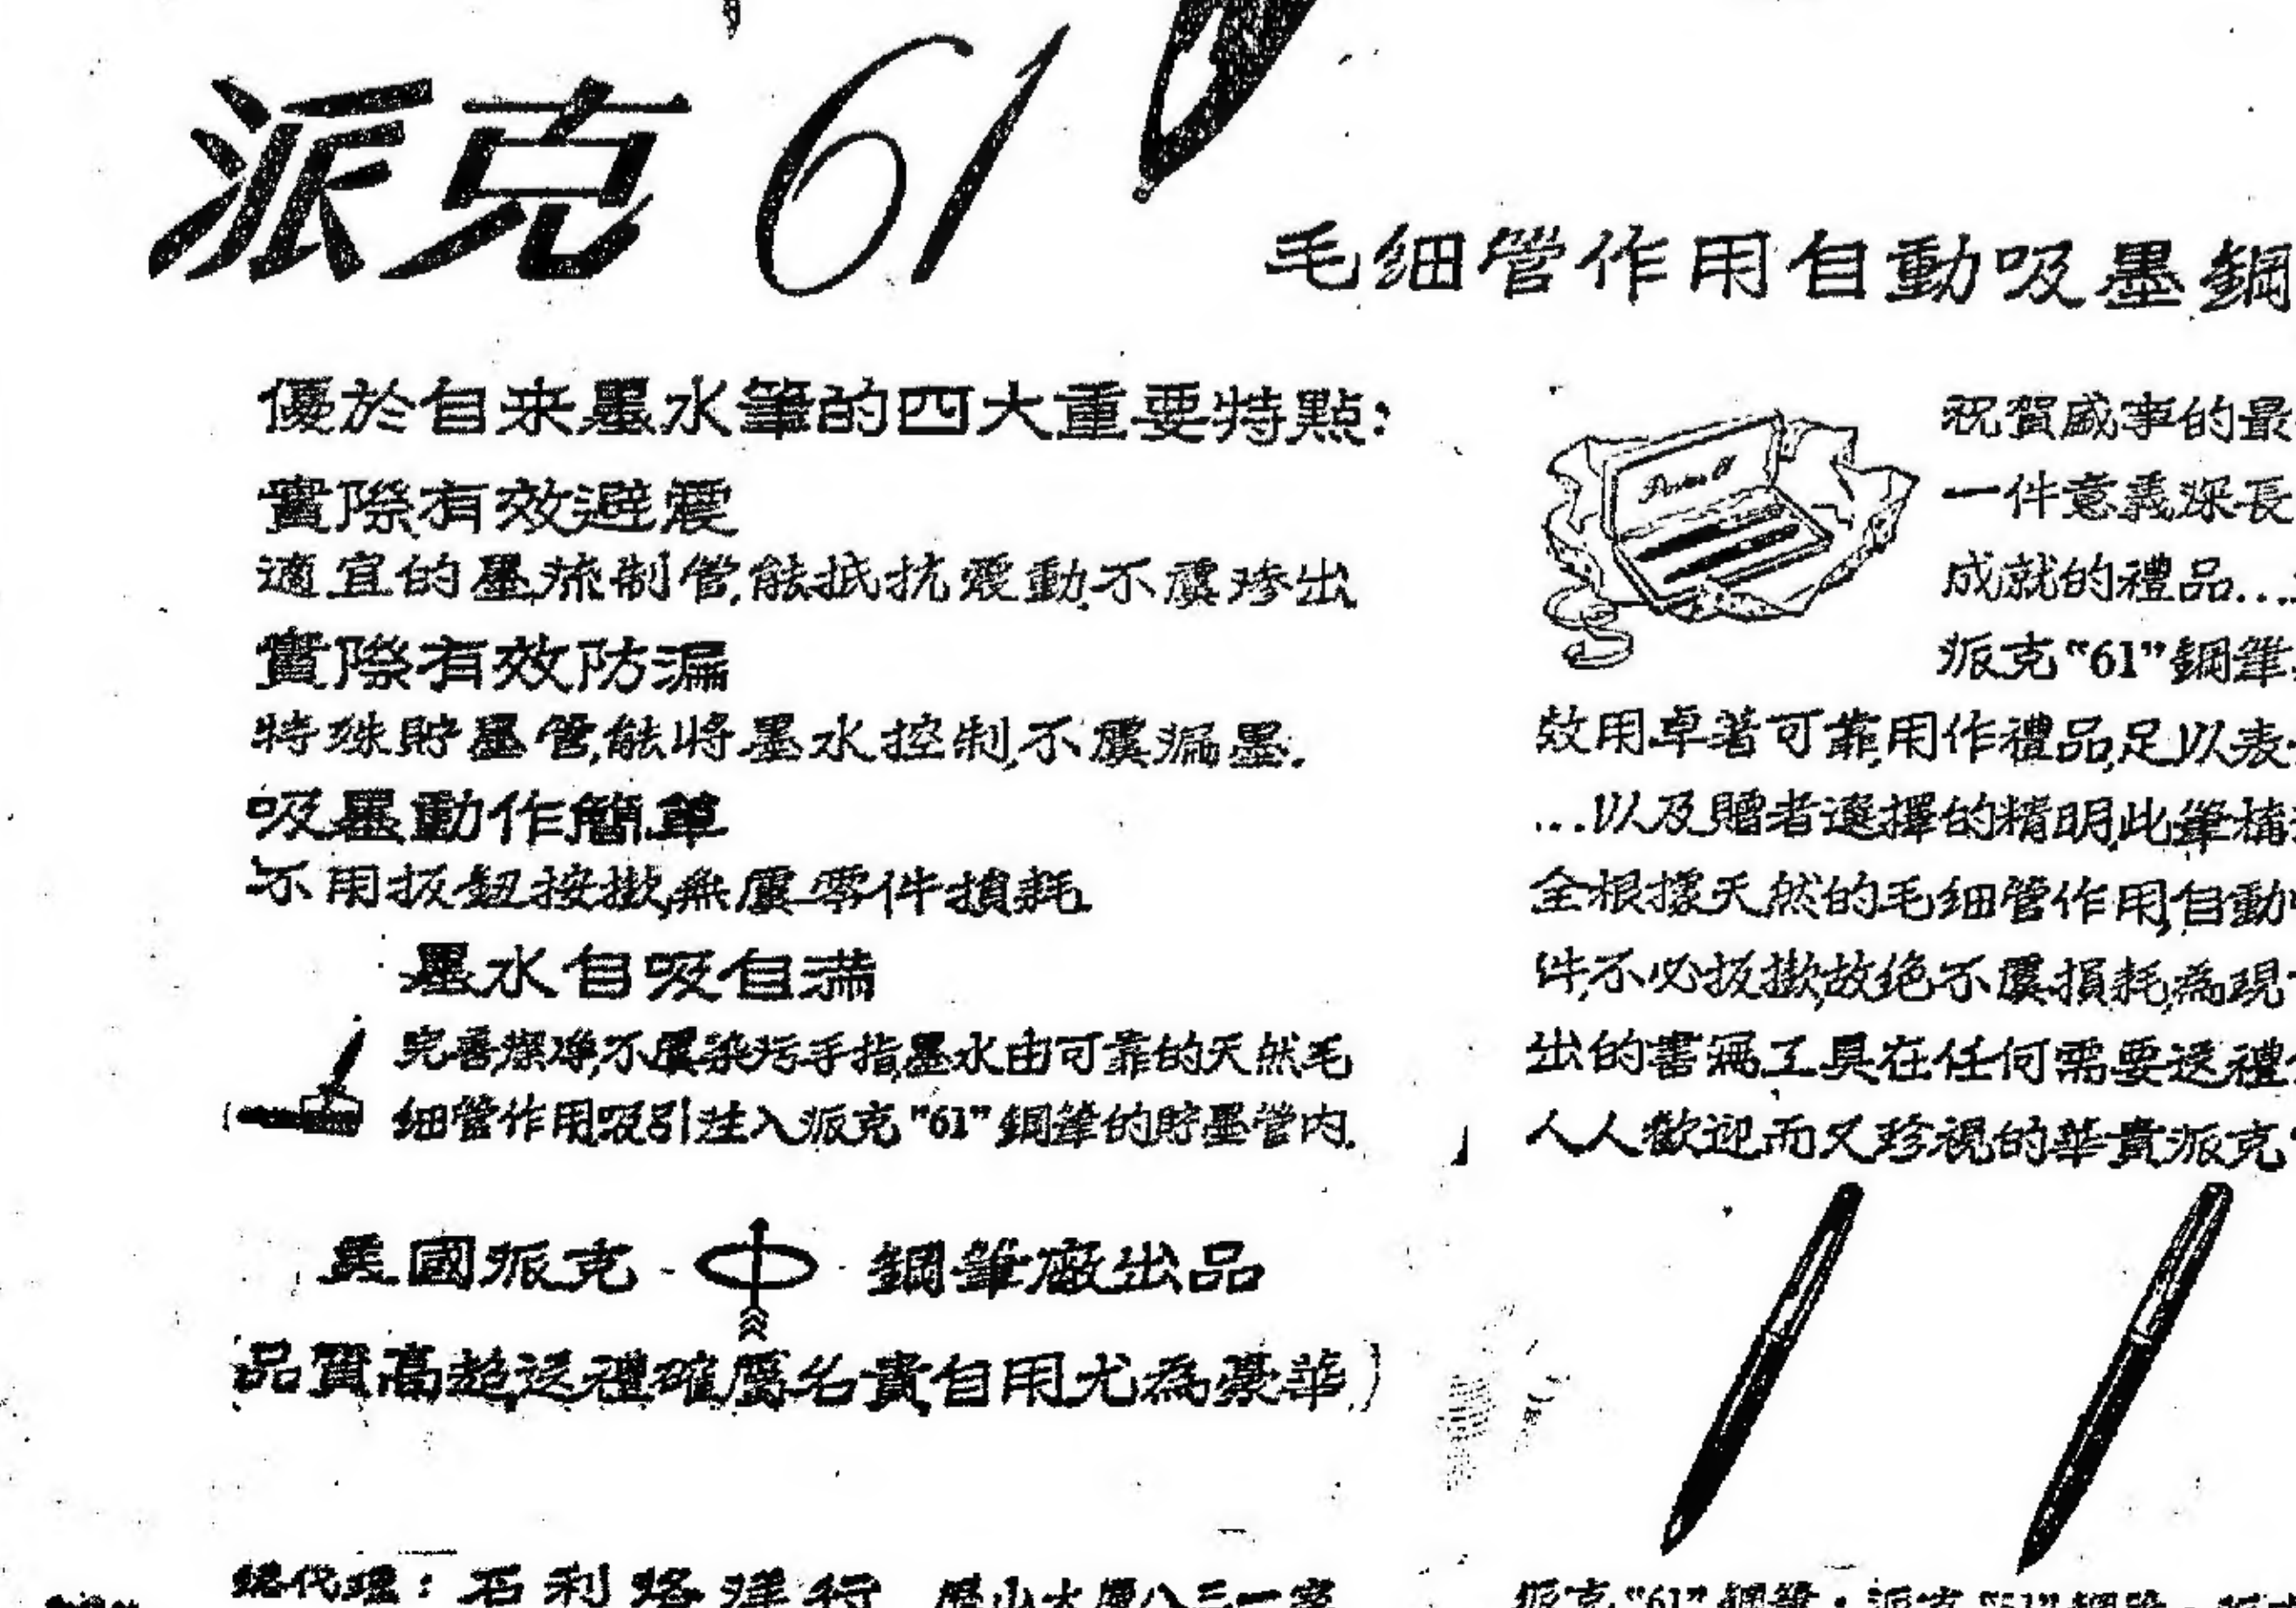 派克 61
毛细管作用自動吸墨鋼
優於自来墨水筆的四大重要特點:
實際有效避震
適宜的墨流制管,能抵抗震動,不虞滲出
實際有效防漏
特殊貯墨管,能將墨水控制,不虞漏墨.
吸墨動作簡單
不用扳鈕按撳,無虞零件損耗.
墨水自吸自满
完善潔净,不虞染污手指,墨水由可靠的天然毛
细管作用吸引注入派克"61"鋼筆的貯墨管内.
美國派克 鋼筆廠出品
品質高超,送禮確屬名貴,自用尤為豪華
總代理: 石利洛洋行
祝賀盛事的最
一件意義深長
成就的禮品...
派克"61"鋼筆
效用卓著可靠,用作禮品,足以表
...以及贈者選擇的精明,此筆構
全根據天然的毛细管作用,自動
件,不必扳撳,故绝不虞損耗,為現
出的書寫工具在任何需要送禮
人人歡迎而又珍視的華貴派克
派克"61"鋼筆